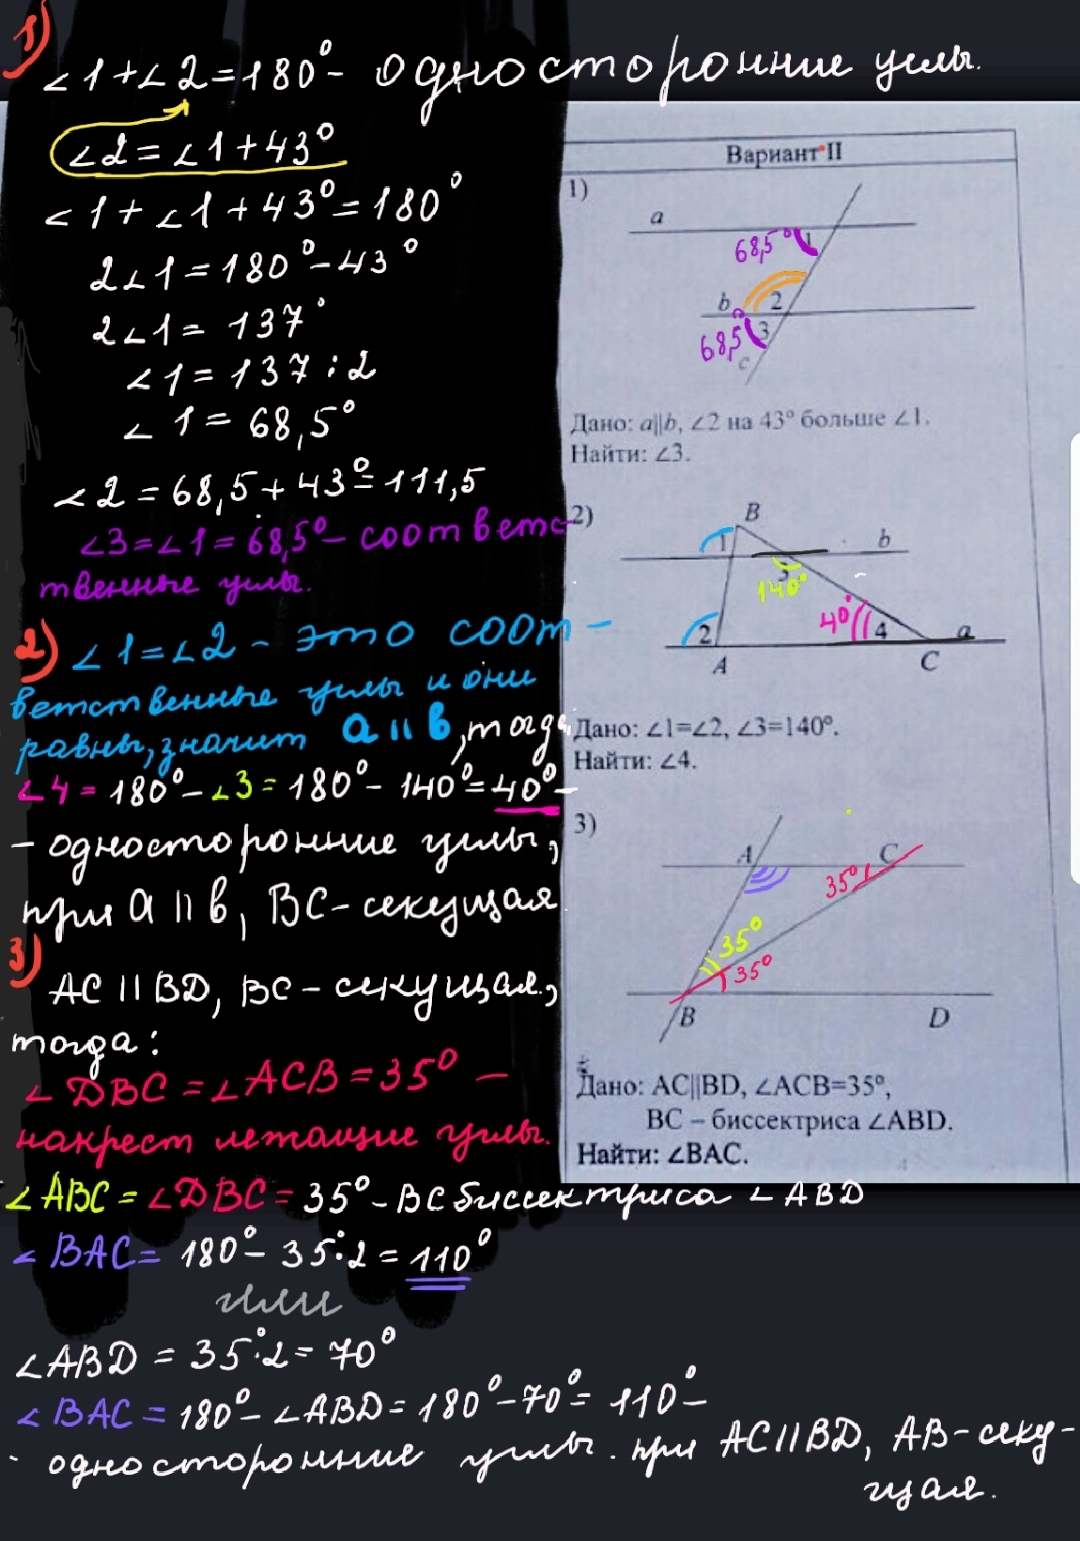 1)
∠1+∠2=180°- односторонние углы.
∠2=∠1+43°
∠1+∠1+43°=180°
2∠1=180°-43°
2∠1=137°
∠1=137:2
∠1=68,5°
∠2=68,5+43°=111,5
∠3=∠1=68,5°- соответс-
твенные углы.
2) ∠1=∠2 - это соот-
ветственные углы и они
равны, значит a || b, тогда
∠4=180°-∠3=180°-140°=40°-
- односторонние углы,
при a || b, BC-секущая
3)
AC || BD, BC-секущая,
тогда:
∠DBC=∠ACB=35° -
накрест лежащие углы.
∠ABC=∠DBC=35°-BC биссектриса ∠ABD
∠BAC=180°-35:2=110°
или
∠ABD=35:2=70°
∠BAC=180°-∠ABD=180°-70°=110°-
- односторонние углы. при AC||BD, AB-секу-
щая.
Вариант II
1)
a
68,5° 1
b 2
68,5 3
c
Дано: a||b, ∠2 на 43° больше ∠1.
Найти: ∠3.
2)
B
1 b
3
140°
40°
2 4 a
A C
Дано: ∠1=∠2, ∠3=140°.
Найти: ∠4.
3)
A C
35°
35°
35°
B D
Дано: AC||BD, ∠ACB=35°,
BC – биссектриса ∠ABD.
Найти: ∠BAC.